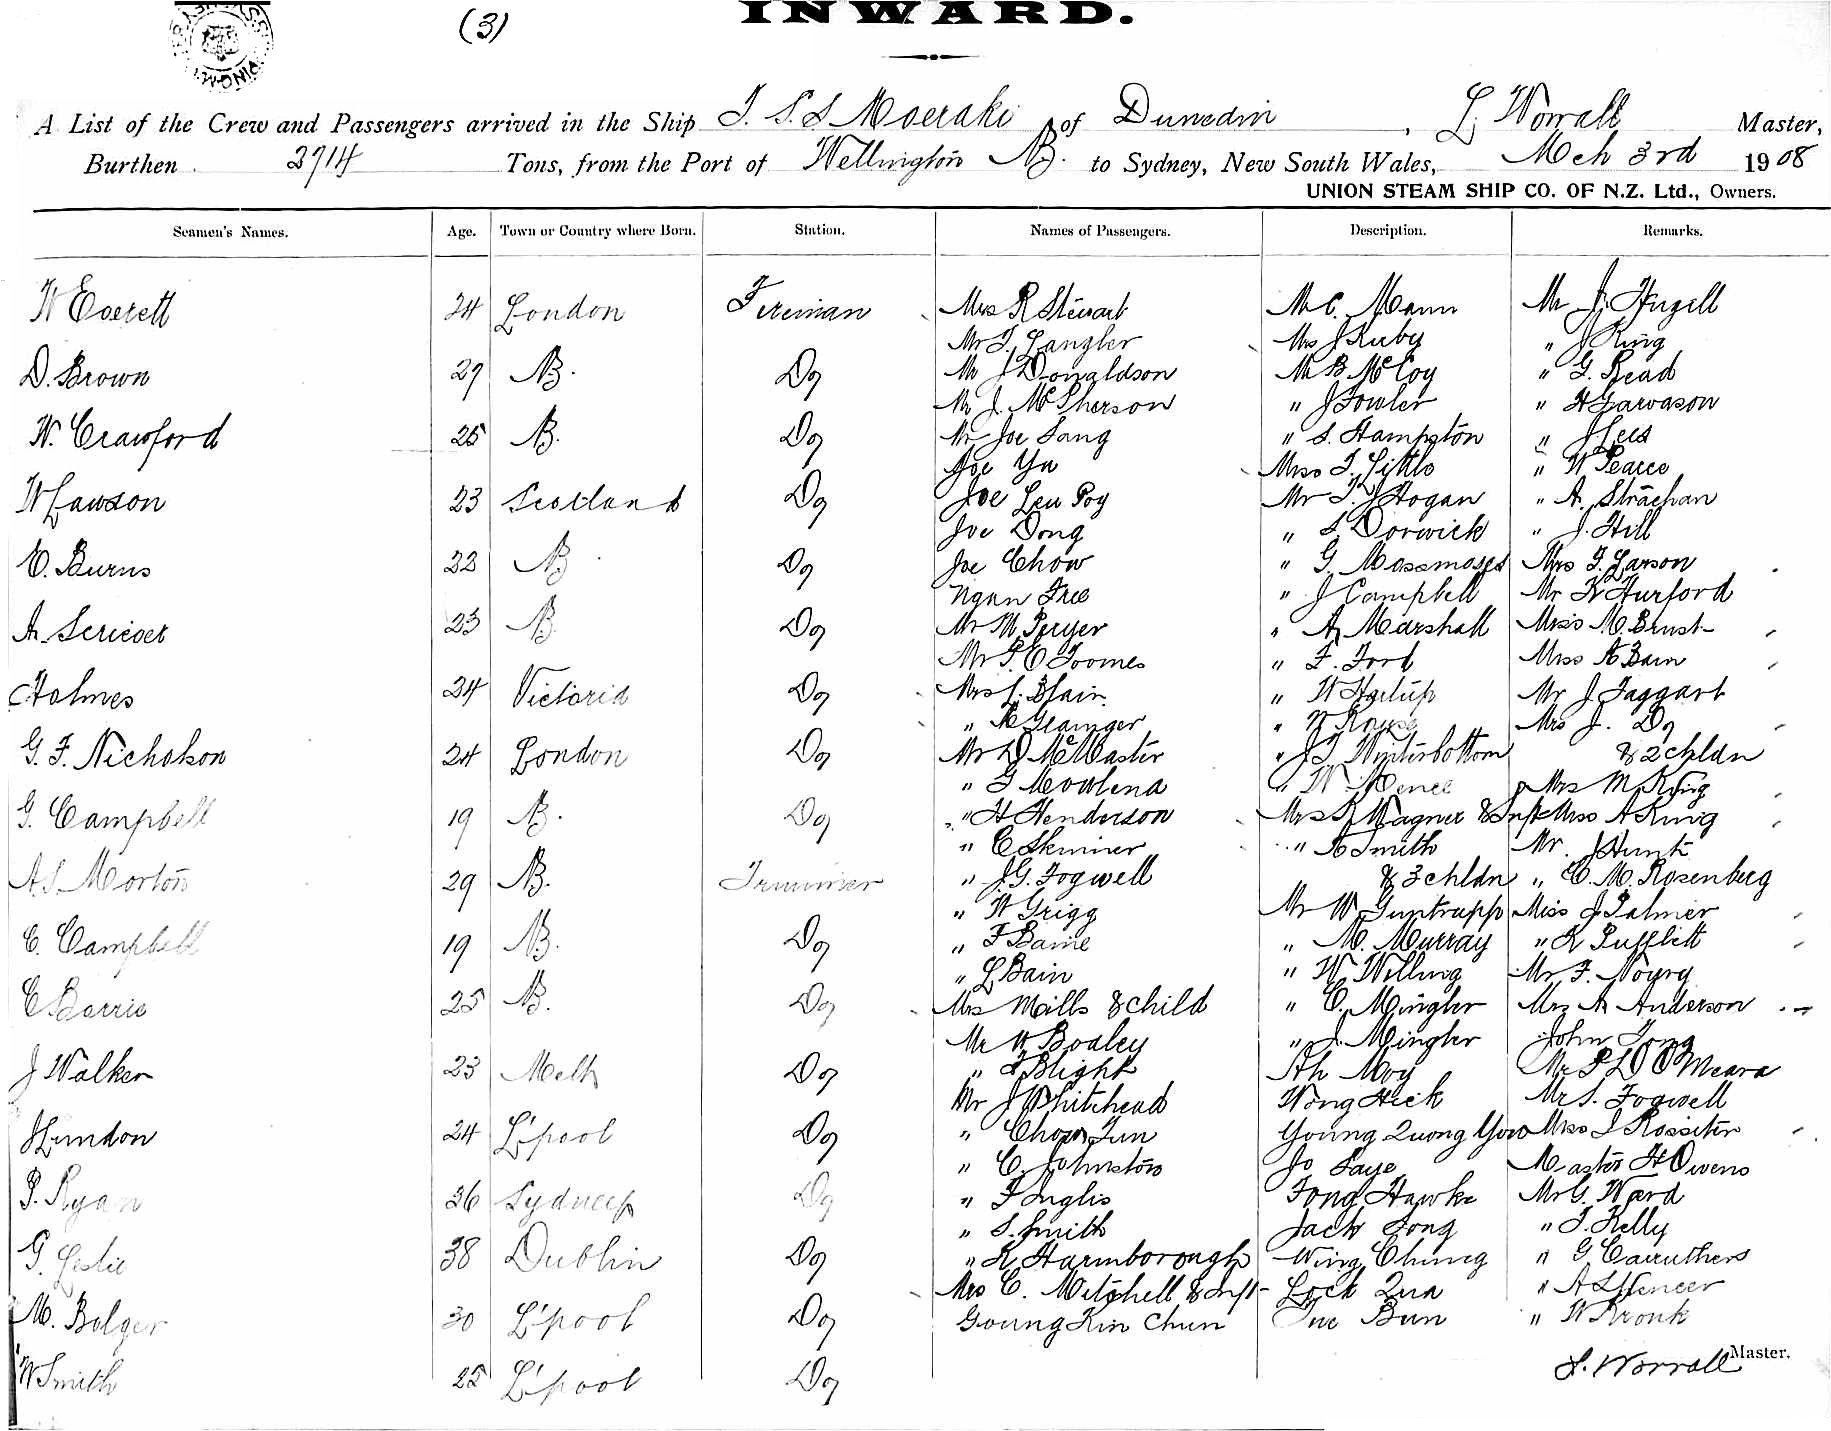 (3)
INWARD.
A List of the Crew and Passengers arrived in the Ship T.S.S Moeraki of Dunedin, L. Worrall Master,
Burthen 2714 Tons, from the Port of Wellington NZ. to Sydney, New South Wales, Mch 3rd 1908
UNION STEAM SHIP CO. OF N.Z. Ltd., Owners.
Seamen's Names. Age. Town or Country where Born. Station. Names of Passengers. Description. Remarks.
W Everett 24 London Fireman
D. Brown 27 NZ. Do
W. Crawford 25 NZ. Do
W Lawson 23 Scotland Do
C. Burns 22 NZ Do
A. 23 NZ Do
Holmes 24 Victoria Do
G. F. Nicholson 24 London Do
G. Campbell 19 NZ. Do
A.S. Morton 29 NZ. Trimmer
C. Campbell 19 NZ. Do
C Barrie 25 NZ. Do
J Walker 23 Melb Do
J Lundon 24 L'pool Do
P. Ryan 26 Sydney Do
G. Leslie 38 Dublin Do
M. Bolger 30 L'pool Do
W Smith 25 L'pool Do
Mrs R Stewart
Mr T. Langler
Mr J Donaldson
Mr J. McPherson
Mr Joe Sang
Joe Yu
Joe Leu Poy
Joe Dong
Joe Chow
Ngan Free
Mr M Peryer
Mr P. C Toomes
Mrs L. Blair
" Grainger
Mr D McMaster
" G Mowlend
" H Henderson
" C Skinner
" J.G. Fogwell
" W Grigg
" F Baine
" L Bain
Mrs Mills & child
Mr W Boaley
" F Blight
Mr J Whitehead
" Chow Tun
" C. Johnston
" F Inglis
" S. Smith
" Harmborough
Mrs C. Mitchell & Inft
Goung Kin Chun
Mr C. Mann
Mrs J Ruby
Mr B McCoy
" J Fowler
" S. Hampton
Miss T. Little
Mr T. J Hogan
" S. Dorwick
" G. Mossmoses
" J Campbell
" A Marshall
" F. Ford
" W
" W Rouse
" J T Winterbottom
" W. Mence
Mrs R Wagner & Inft
" Smith
& 3 chldn
Mr W Guntrapp
" M. Murray
" W Willing
" C. Mingler
" J. Mingler
Ah Moy
Wong Hick
Young Quong Yow
Jo Faye
Fong Hawke
Jack Fong
Wing Chung
Lock Qua
Tue Bun
Mr J. Hugill
" J King
" G. Read
" H Garvason
" J Lees
" W Pearce
" A. Strachan
" J. Hill
Mrs F. Larson
Mr W Hurford
Miss M. Brust
Miss A Bain
Mr J Taggart
Mrs J. Do
& 2 chldn
Mrs M King
Miss A King
Mr. J Hunt
" C. M. Rosenberg
Miss J Palmer
" R Pufflett
Mr F. Noyry
Mrs A Anderson
John Tong
Mr P D O'Meara
Mr S. Fogwell
Miss I Rossiter
Master H Owens
Mr G. Ward
" T. Kelly
" G Carruthers
" A Spencer
" W Kronk
L. Worrall Master.